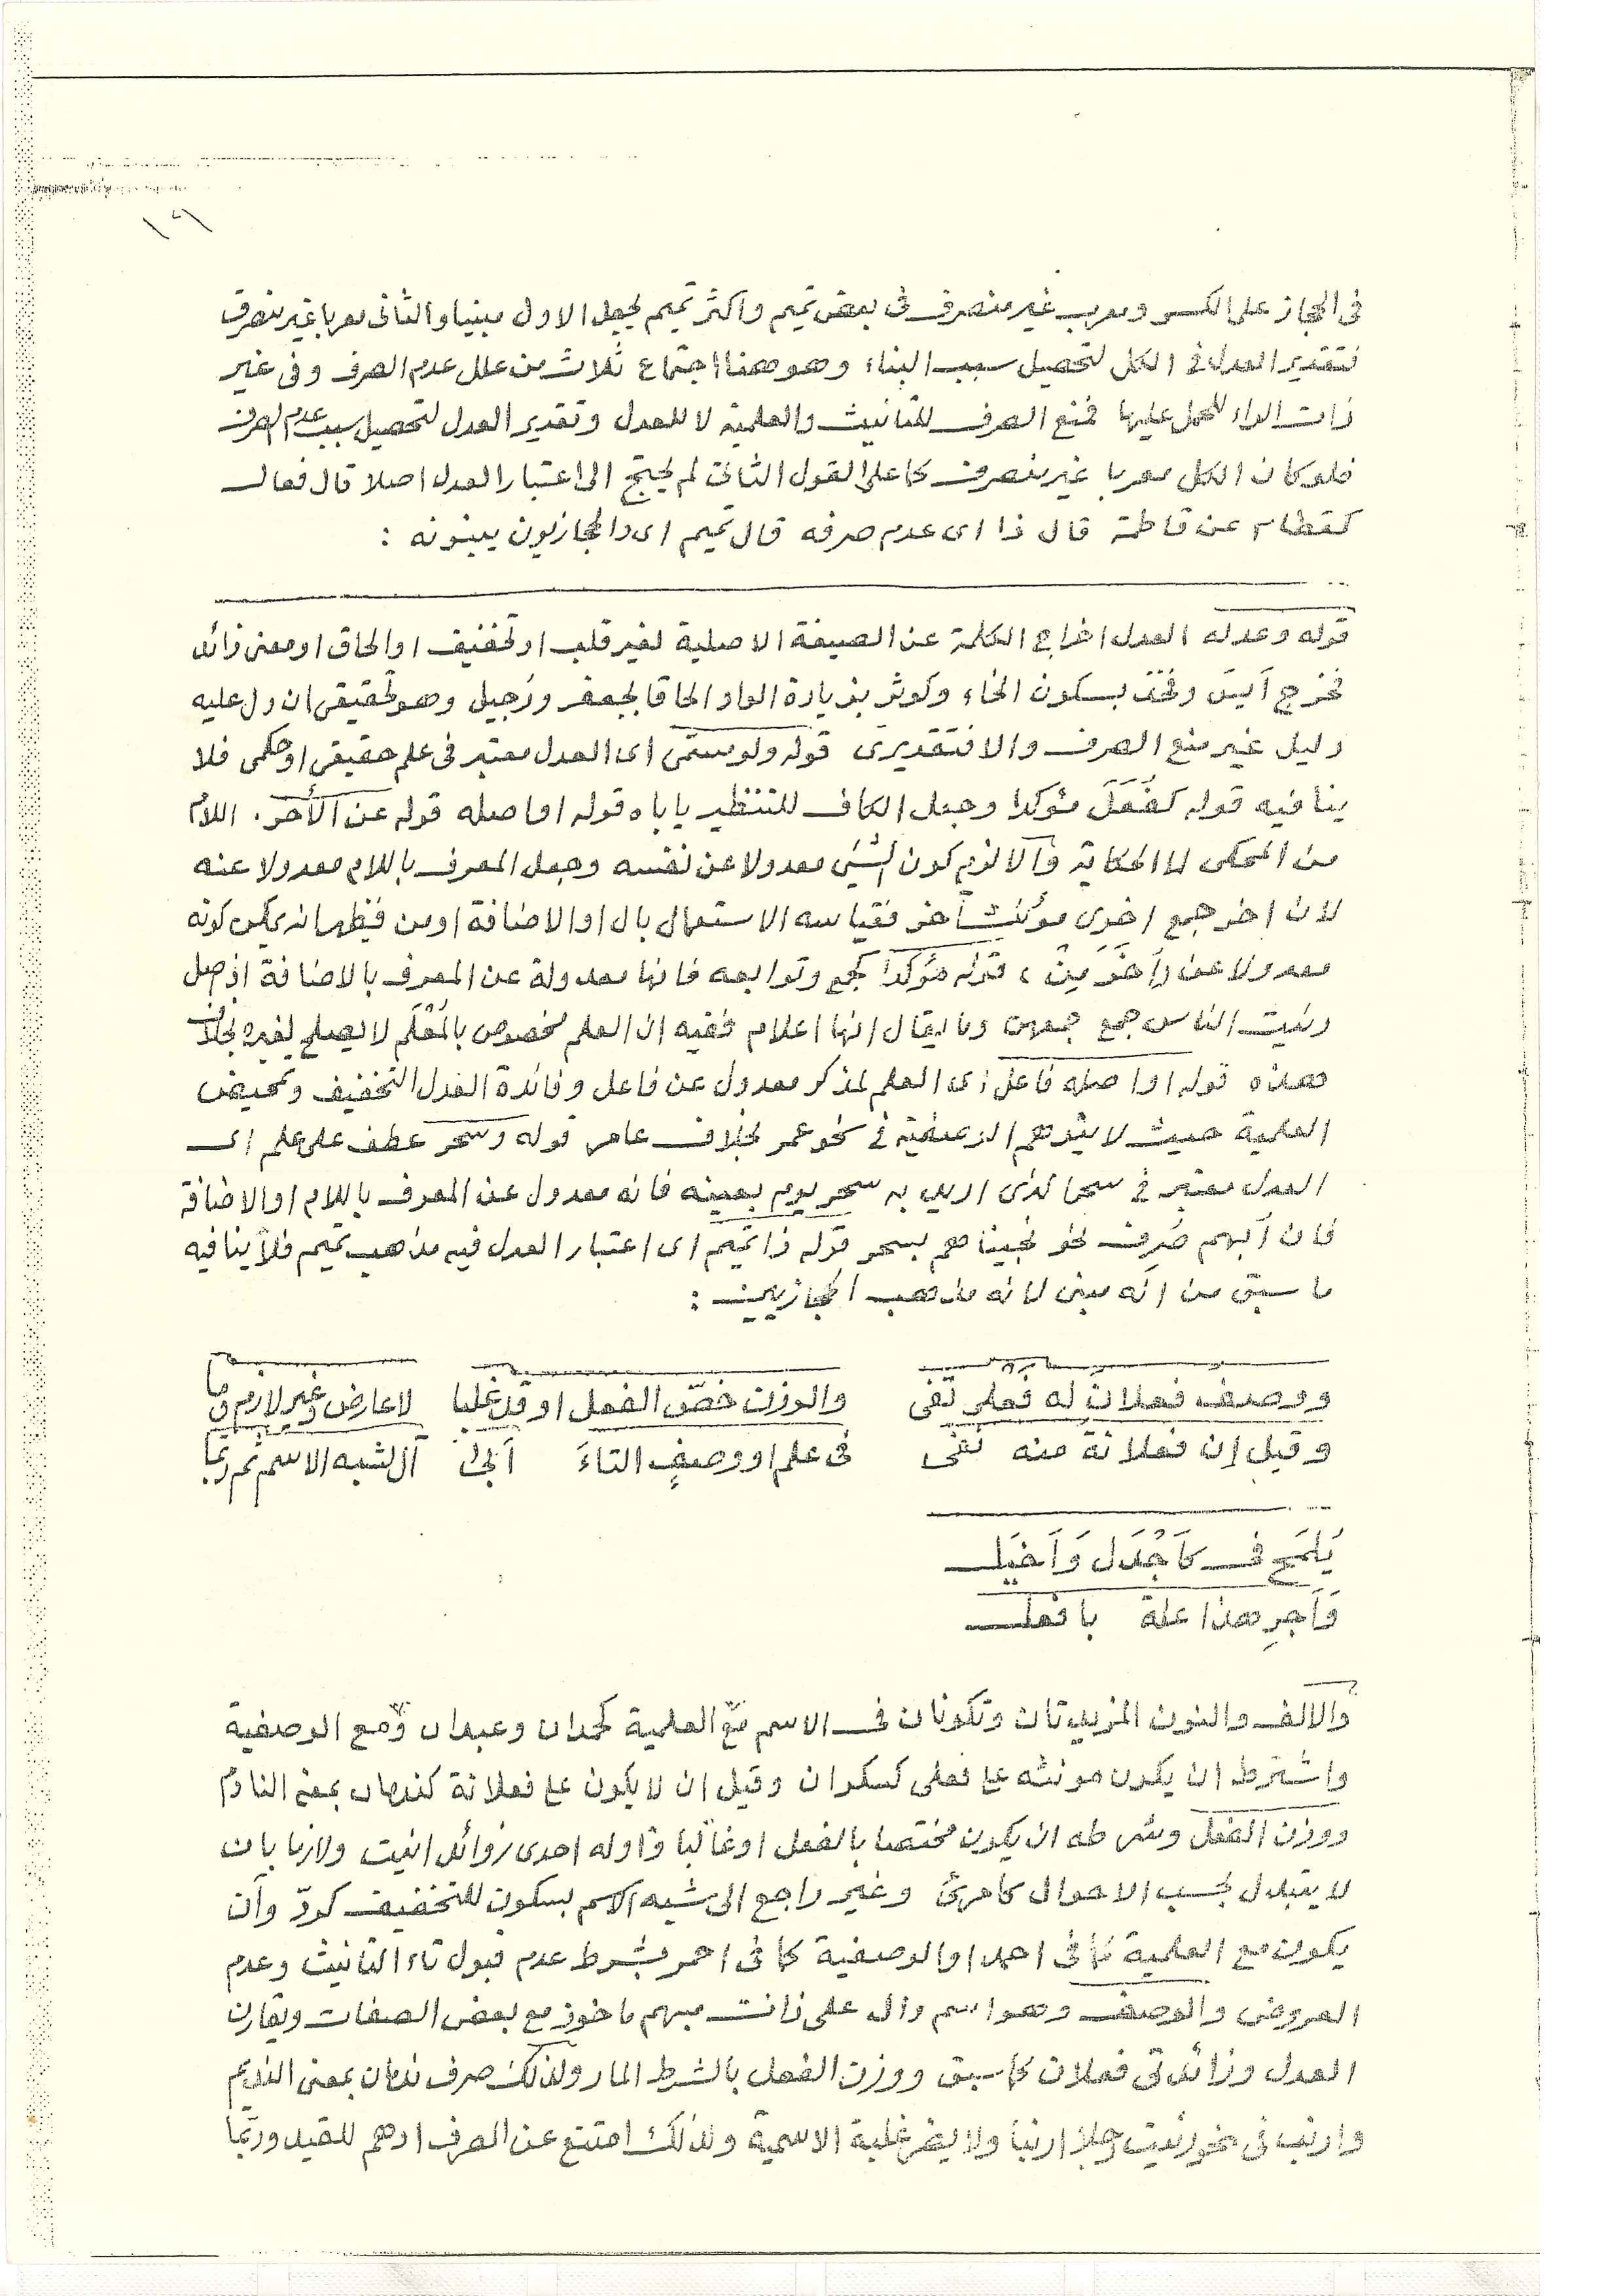 ١٦١
فى الحجاز على الكسر ومعرب غير منصرف فى بعض تميم واكثر تميم يجعل الاول مبنيا والثانى معربا غير منصرف
فتقدير العدل فى الكل لتحصيل سبب البناء وهو ههنا اجتماع ثلاث من علل عدم الصرف وفى غير
ذات الراء للحمل عليها فمنع الصرف للتانيث والعلمية لا للعدل وتقدير العدل لتحصيل سبب عدم الصرف
فلو كان الكل معربا غير منصرف كما على القول الثانى لم يحتج الى اعتبار العدل اصلا قال فعال
كقطام عن قاطمة قال ذا اى عدم صرفه قال تميم اى والحجازيون يبنونه :
قوله وعدله العدل اخراج الكلمة عن الصيغة الاصلية لغير قلب او تخفيف او الحاق او معنى زائد
فخرج آيس وفخذ بسكون الخاء وكوثر بزيادة الواو الحاقا بجعفر ورُجيل وهو تحقيقى ان دل عليه
دليل غير منع الصرف والا فتقديرى قوله ولو سمى اى العدل معتبر فى علم حقيقى او حكمى فلا
ينافيه قوله كفُعَلَ مؤكدا وجعل الكاف للتنظير ياباه قوله او اصله قوله عن الأخر . اللام
من المحكى لا الحكاية وآلا لزم كون الشيئ معدولا عن نفسه وجعل المعرف باللام معدولا عنه
لان اخر جمع اخرى مؤنث آخر فقياسه الاستعمال بال او الاضافة او من فيظهر انه يمكن كونه
معدولا عن رآخَرَ مِنْ ، قوله مؤكدا كجمع وتوابعه فانها معدولة عن المعرف بالاضافة اذ اصل
رئيت الناس جمع جمعهن وما يقال انها اعلام ففيه ان العلم مخصوص بالمُعْلَم لا يصلح لغيره بخلاف
هذه قوله او اصله فاعل اى العلم لمذكر معدول عن فاعل وفائدة العدل التخفيف وتمحيض
العلمية حيث لا يتوهم الوصفية فى نحو عمر بخلاف عامر قوله وسحر عطف على علم اى
العدل معتبر فى سحر الذى اريد به سحر يوم بعينه فانه معدول عن المعرف باللام او الاضافة
فان اُبهم صُرِف نحو نجيناهم بسحر قوله ذا تميم اى اعتبار العدل فيه مذهب تميم فلا ينافيه
ما سبق من انه مبنى لانه مذهب الحجازيين :
ووصف فعلانٍ له فعلى تفى والوزن خصّ الفعل او قد غلبا لا عارض وغير لازم وما
وقيل إن فعلانة منه نفى فى علم او وصفٍ التاءَ أبى آل لشبه الاسم ثم ربما
يُلمَح فى كاَجْدَل وَاَخيَل
وَاَجرِ هذا علة بافعل
والالف والنون المزيدتان وتكونان فى الاسم مع العلمية كحمدان وعبدان ومع الوصفية
واشترط ان يكون مونثه على فعلى كسكران وقيل ان لا يكون على فعلانة كندمان بمعنى النادم
ووزن الفعل وشرطه ان يكون مختصا بالفعل او غالبا واوله احدى زوائد انيت ولازما بان
لا يتبدل بحسب الاحوال كامرئ وغير راجع الى شبه الاسم بسكون للتخفيف كردّ وآن
يكون مع العلمية كما فى احمد او الوصفية كما فى احمر بشرط عدم قبول تاء التانيث وعدم
العروض والوصف وهو اسم دال على ذات مبهم ماخوذ مع بعض الصفات ويقارن
العدل وزائدتى فعلان كما سبق ووزن الفعل بالشرط المار ولذلك صرف ندمان بمعنى النديم
وارنب فى نحو رئيت رجلا ارنبا ولا يضر غلبة الاسمية ولذلك امتنع عن الصرف ادهم للقيد وربما